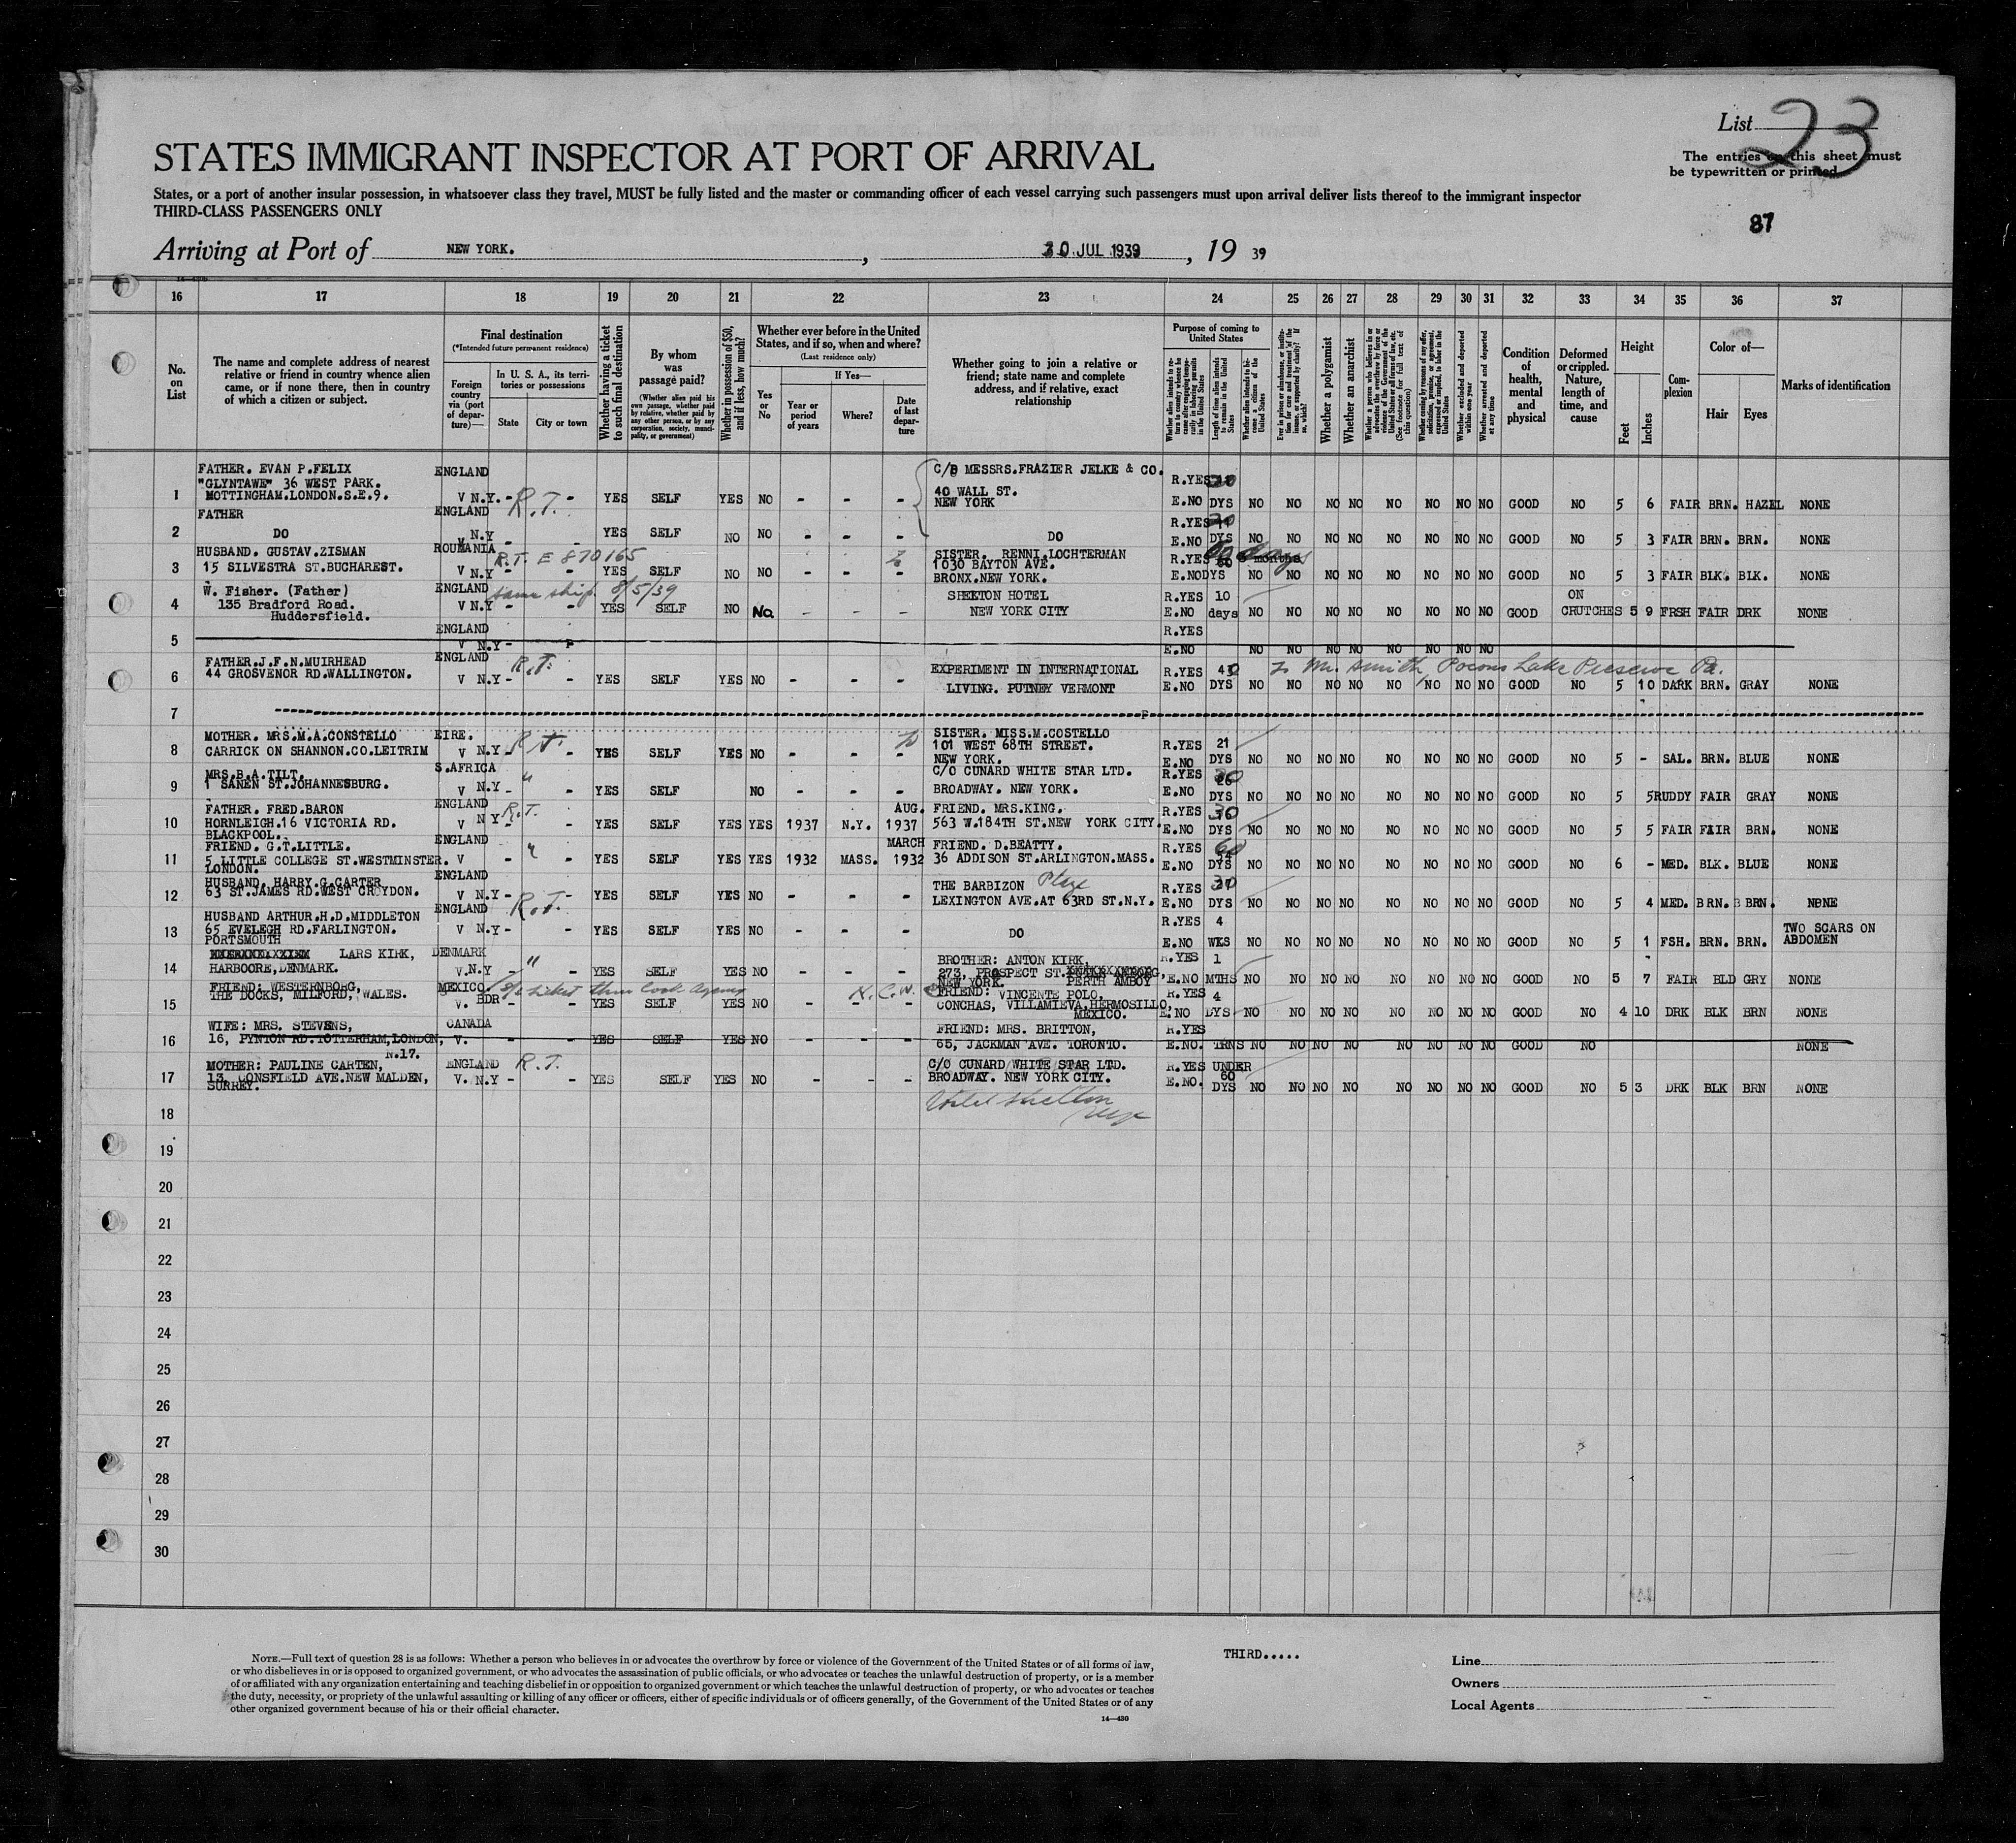 List 23
The entries on this sheet must
be typewritten or printed
STATES IMMIGRANT INSPECTOR AT PORT OF ARRIVAL
States, or a port of another insular possession, in whatsoever class they travel, MUST be fully listed and the master or commanding officer of each vessel carrying such passengers must upon arrival deliver lists thereof to the immigrant inspector
THIRD-CLASS PASSENGERS ONLY
87
Arriving at Port of NEW YORK. , 30 JUL 1939 , 19 39
16 17 18 19 20 21 22 23 24 25 26 27 28 29 30 31 32 33 34 35 36 37
No. on List
The name and complete address of nearest relative or friend in country whence alien came, or if none there, then in country of which a citizen or subject.
Final destination
(*Intended future permanent residence)
Foreign country via (port of departure)—
In U. S. A., its territories or possessions
State City or town
Whether having a ticket to such final destination
By whom was passage paid?
(Whether alien paid his own passage, whether paid by relative, whether paid by any other person, or by any corporation, society, municipality, or government)
Whether in possession of $50, and if less, how much?
Whether ever before in the United States, and if so, when and where?
(Last residence only)
Yes or No
If Yes—
Year or period of years
Where?
Date of last departure
Whether going to join a relative or friend; state name and complete address, and if relative, exact relationship
Purpose of coming to United States
Length of time alien intends to remain in the United States
Whether alien intends to become a citizen of the United States
Whether a polygamist
Whether an anarchist
Whether excluded and deported within one year
Whether arrested and deported at any time
Condition of health, mental and physical
Deformed or crippled. Nature, length of time, and cause
Height
Feet Inches
Complexion
Color of—
Hair Eyes
Marks of identification
FATHER. EVAN P.FELIX ENGLAND C/O MESSRS.FRAZIER JELKE & CO.
"GLYNTAWE" 36 WEST PARK. 40 WALL ST. R.YES
1 MOTTINGHAM.LONDON.S.E.9. V N.Y. - R.T. - YES SELF YES NO - - - NEW YORK E.NO DYS NO NO NO NO NO NO NO NO GOOD NO 5 6 FAIR BRN. HAZEL NONE
FATHER ENGLAND R.YES
2 DO V N.Y - YES SELF NO NO - - - DO E.NO DYS NO NO NO NO NO NO NO NO GOOD NO 5 3 FAIR BRN. BRN. NONE
HUSBAND. GUSTAV.ZISMAN ROUMANIA R.T. E 870165 SISTER. RENNI.LOCHTERMAN R.YES 60 days
3 15 SILVESTRA ST.BUCHAREST. V N.Y - - YES SELF NO NO - - - 1030 BAYTON AVE. BRONX.NEW YORK. E.NO DYS NO NO NO NO NO NO NO NO GOOD NO 5 3 FAIR BLK. BLK. NONE
W. Fisher. (Father) ENGLAND same ship 8/5/39 SHELTON HOTEL R.YES 10 ON
4 135 Bradford Road. V N.Y - - YES SELF NO No. - - - NEW YORK CITY E.NO days NO NO NO NO NO NO NO NO GOOD CRUTCHES 5 9 FRSH FAIR DRK NONE
Huddersfield.
5 ENGLAND V N.Y - R.YES E.NO NO NO NO NO NO NO NO NO
FATHER.J.F.N.MUIRHEAD ENGLAND R.T. EXPERIMENT IN INTERNATIONAL R.YES To Mr. Smith, Pocono Lake Preserve Pa.
6 44 GROSVENOR RD.WALLINGTON. V N.Y - - YES SELF YES NO - - - LIVING. PUTNEY VERMONT E.NO DYS NO NO NO NO NO NO NO NO GOOD NO 5 10 DARK BRN. GRAY NONE
7
MOTHER. MRS.M.A.COSTELLO EIRE. R.T. SISTER. MISS.M.COSTELLO
8 CARRICK ON SHANNON.CO.LEITRIM V N.Y - - YES SELF YES NO - - - 101 WEST 68TH STREET. NEW YORK. R.YES 21 E.NO DYS NO NO NO NO NO NO NO NO GOOD NO 5 - SAL. BRN. BLUE NONE
MRS.B.A.TILT. S.AFRICA " C/O CUNARD WHITE STAR LTD. R.YES
9 1 SANEN ST.JOHANNESBURG. V N.Y - - YES SELF NO - - - BROADWAY. NEW YORK. E.NO DYS NO NO NO NO NO NO NO NO GOOD NO 5 5 RUDDY FAIR GRAY NONE
FATHER. FRED.BARON ENGLAND R.T. AUG. FRIEND. MRS.KING. R.YES 30
10 HORNLEIGH.16 VICTORIA RD. V N Y - - YES SELF YES YES 1937 N.Y. 1937 563 W.184TH ST.NEW YORK CITY. E.NO DYS NO NO NO NO NO NO NO NO GOOD NO 5 5 FAIR FAIR BRN. NONE
BLACKPOOL.
FRIEND. G.T.LITTLE. ENGLAND MARCH FRIEND. D.BEATTY. R.YES 60
11 5 LITTLE COLLEGE ST.WESTMINSTER. V - " - YES SELF YES YES 1932 MASS. 1932 36 ADDISON ST.ARLINGTON.MASS. E.NO DYS NO NO NO NO NO NO NO NO GOOD NO 6 - MED. BLK. BLUE NONE
LONDON.
HUSBAND. HARRY.G.CARTER ENGLAND THE BARBIZON Plaza R.YES
12 63 ST.JAMES RD.WEST CROYDON. V N.Y - - YES SELF YES NO - - - LEXINGTON AVE.AT 63RD ST.N.Y. E.NO DYS NO NO NO NO NO NO NO NO GOOD NO 5 4 MED. BRN. BRN. NONE
HUSBAND ARTHUR.H.D.MIDDLETON ENGLAND R.T. R.YES 4 TWO SCARS ON
13 65 EVELEGH RD.FARLINGTON. V N.Y - - YES SELF YES NO - - - DO E.NO WKS NO NO NO NO NO NO NO NO GOOD NO 5 1 FSH. BRN. BRN. ABDOMEN
PORTSMOUTH
LARS KIRK, DENMARK BROTHER: ANTON KIRK, R.YES 1
14 HARBOORE,DENMARK. V.N.Y - " - YES SELF YES NO - - - 273, PROSPECT ST. PERTH AMBOY NEW YORK. E.NO MTHS NO NO NO NO NO NO NO NO GOOD NO 5 7 FAIR BLD GRY NONE
FRIEND: WESTERNBORG, MEXICO. FRIEND: VINCENTE POLO, R.YES 4
15 THE DOCKS, MILFORD, WALES. V. BDR - - YES SELF YES NO - - - CONCHAS, VILLAMIEVA,HERMOSILLO, MEXICO. E.NO DYS NO NO NO NO NO NO NO NO GOOD NO 4 10 DRK BLK BRN NONE
WIFE: MRS. STEVENS, CANADA FRIEND: MRS. BRITTON, R.YES
16 16, PYNTON RD.TOTTERHAM,LONDON, V. - - YES SELF YES NO - - - 65, JACKMAN AVE. TORONTO. E.NO. TRNS NO NO NO NO NO NO NO NO GOOD NO NONE
N.17.
MOTHER: PAULINE CARTEN, ENGLAND R.T. C/O CUNARD WHITE STAR LTD. R.YES UNDER
17 13, CONSFIELD AVE.NEW MALDEN, V. N.Y - - YES SELF YES NO - - - BROADWAY. NEW YORK CITY. E.NO. 60 DYS NO NO NO NO NO NO NO NO GOOD NO 5 3 DRK BLK BRN NONE
SURREY.
Hotel Shelton
18
19
20
21
22
23
24
25
26
27
28
29
30
NOTE.—Full text of question 28 is as follows: Whether a person who believes in or advocates the overthrow by force or violence of the Government of the United States or of all forms of law,
or who disbelieves in or is opposed to organized government, or who advocates the assassination of public officials, or who advocates or teaches the unlawful destruction of property, or is a member
of or affiliated with any organization entertaining and teaching disbelief in or opposition to organized government or which teaches the unlawful destruction of property, or who advocates or teaches
the duty, necessity, or propriety of the unlawful assaulting or killing of any officer or officers, either of specific individuals or of officers generally, of the Government of the United States or of any
other organized government because of his or their official character.
14—430
THIRD.....
Line
Owners
Local Agents